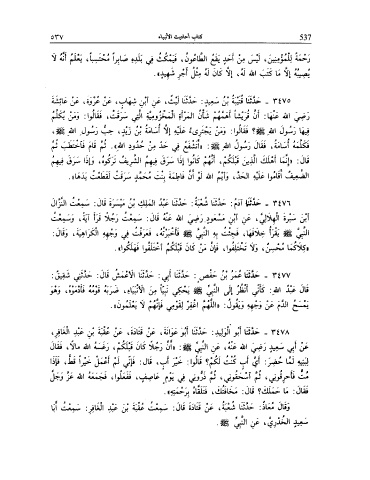 ٥٣٧ كتاب أحاديث الأنبياء 537
رَحْمَةً لِلْمُؤْمِنِينَ، لَيْسَ مِنْ أَحَدٍ يَقَعُ الطَّاعُونُ، فَيَمْكُثُ فِي بَلَدِهِ صَابِراً مُحْتَسِباً، يَعْلَمُ أَنَّهُ لَا
يُصِيبُهُ إِلَّا مَا كَتَبَ اللهُ لَهُ، إِلَّا كَانَ لَهُ مِثْلُ أَجْرِ شَهِيدٍ».
٣٤٧٥ - حَدَّثَنَا قُتَيْبَةُ بْنُ سَعِيدٍ: حَدَّثَنَا لَيْثٌ، عَنِ ابْنِ شِهَابٍ، عَنْ عُرْوَةَ، عَنْ عَائِشَةَ
رضي الله عنها: أَنَّ قُرَيْشاً أَهَمَّهُمْ شَأْنُ المَرْأَةِ المَخْزُومِيَّةِ الَّتِي سَرَقَتْ، فَقَالُوا: وَمَنْ يُكَلِّمُ
فِيهَا رَسُولَ اللهِ ﷺ؟ فَقَالُوا: وَمَنْ يَجْتَرِىءُ عَلَيْهِ إِلَّا أُسَامَةُ بْنُ زَيْدٍ، حِبُّ رَسُولِ اللهِ ﷺ،
فَكَلَّمَهُ أُسَامَةُ، فَقَالَ رَسُولُ اللهِ ﷺ: «أَتَشْفَعُ فِي حَدٍّ مِنْ حُدُودِ اللهِ». ثُمَّ قَامَ فَاخْتَطَبَ ثُمَّ
قَالَ: «إِنَّمَا أَهْلَكَ الَّذِينَ قَبْلَكُمْ، أَنَّهُمْ كَانُوا إِذَا سَرَقَ فِيهِمُ الشَّرِيفُ تَرَكُوهُ، وَإِذَا سَرَقَ فِيهِمُ
الضَّعِيفُ أَقَامُوا عَلَيْهِ الحَدَّ، وَايْمُ اللهِ لَوْ أَنَّ فَاطِمَةَ بِنْتَ مُحَمَّدٍ سَرَقَتْ لَقَطَعْتُ يَدَهَا».
٣٤٧٦ - حَدَّثَنَا آدَمُ: حَدَّثَنَا شُعْبَةُ: حَدَّثَنَا عَبْدُ المَلِكِ بْنُ مَيْسَرَةَ قَالَ: سَمِعْتُ النَّزَّالَ
ابْنَ سَبْرَةَ الهِلَالِيَّ، عَنِ ابْنِ مَسْعُودٍ رضي الله عنه قَالَ: سَمِعْتُ رَجُلاً قَرَأَ آيَةً، وَسَمِعْتُ
النَّبِيَّ ﷺ يَقْرَأُ خِلَافَهَا، فَجِئْتُ بِهِ النَّبِيَّ ﷺ فَأَخْبَرْتُهُ، فَعَرَفْتُ فِي وَجْهِهِ الكَرَاهِيَةَ، وَقَالَ:
«كِلَاكُمَا مُحْسِنٌ، وَلَا تَخْتَلِفُوا، فَإِنَّ مَنْ كَانَ قَبْلَكُمُ اخْتَلَفُوا فَهَلَكُوا».
٣٤٧٧ - حَدَّثَنَا عُمَرُ بْنُ حَفْصٍ: حَدَّثَنَا أَبِي: حَدَّثَنَا الأَعْمَشُ قَالَ: حَدَّثَنِي شَقِيقٌ:
قَالَ عَبْدُ اللهِ: كَأَنِّي أَنْظُرُ إِلَى النَّبِيِّ ﷺ يَحْكِي نَبِيّاً مِنَ الأَنْبِيَاءِ، ضَرَبَهُ قَوْمُهُ فَأَدْمَوْهُ، وَهُوَ
يَمْسَحُ الدَّمَ عَنْ وَجْهِهِ وَيَقُولُ: «اللَّهُمَّ اغْفِرْ لِقَوْمِي فَإِنَّهُمْ لَا يَعْلَمُونَ».
٣٤٧٨ - حَدَّثَنَا أَبُو الوَلِيدِ: حَدَّثَنَا أَبُو عَوَانَةَ، عَنْ قَتَادَةَ، عَنْ عُقْبَةَ بْنِ عَبْدِ الغَافِرِ،
عَنْ أَبِي سَعِيدٍ رَضِيَ اللهُ عَنْهُ، عَنِ النَّبِيِّ ﷺ: «أَنَّ رَجُلاً كَانَ قَبْلَكُمْ، رَغَسَهُ اللهُ مالاً، فَقَالَ
لِبَنِيهِ لَمَّا حُضِرَ: أَيَّ أَبٍ كُنْتُ لَكُمْ؟ قَالُوا: خَيْرَ أَبٍ، قَالَ: فَإِنِّي لَمْ أَعْمَلْ خَيْراً قَطُّ، فَإِذَا
مُتُّ فَأَحْرِقُونِي، ثُمَّ اسْحَقُونِي، ثُمَّ ذَرُّونِي فِي يَوْمٍ عَاصِفٍ، فَفَعَلُوا، فَجَمَعَهُ اللهُ عَزَّ وَجَلَّ
فَقَالَ: مَا حَمَلَكَ؟ قَالَ: مَخَافَتُكَ، فَتَلَقَّاهُ بِرَحْمَتِهِ».
وَقَالَ مُعَاذٌ: حَدَّثَنَا شُعْبَةُ، عَنْ قَتَادَةَ قَالَ: سَمِعْتُ عُقْبَةَ بْنَ عَبْدِ الغَافِرِ: سَمِعْتُ أَبَا
سَعِيدٍ الخُدْرِيَّ، عَنِ النَّبِيِّ ﷺ.